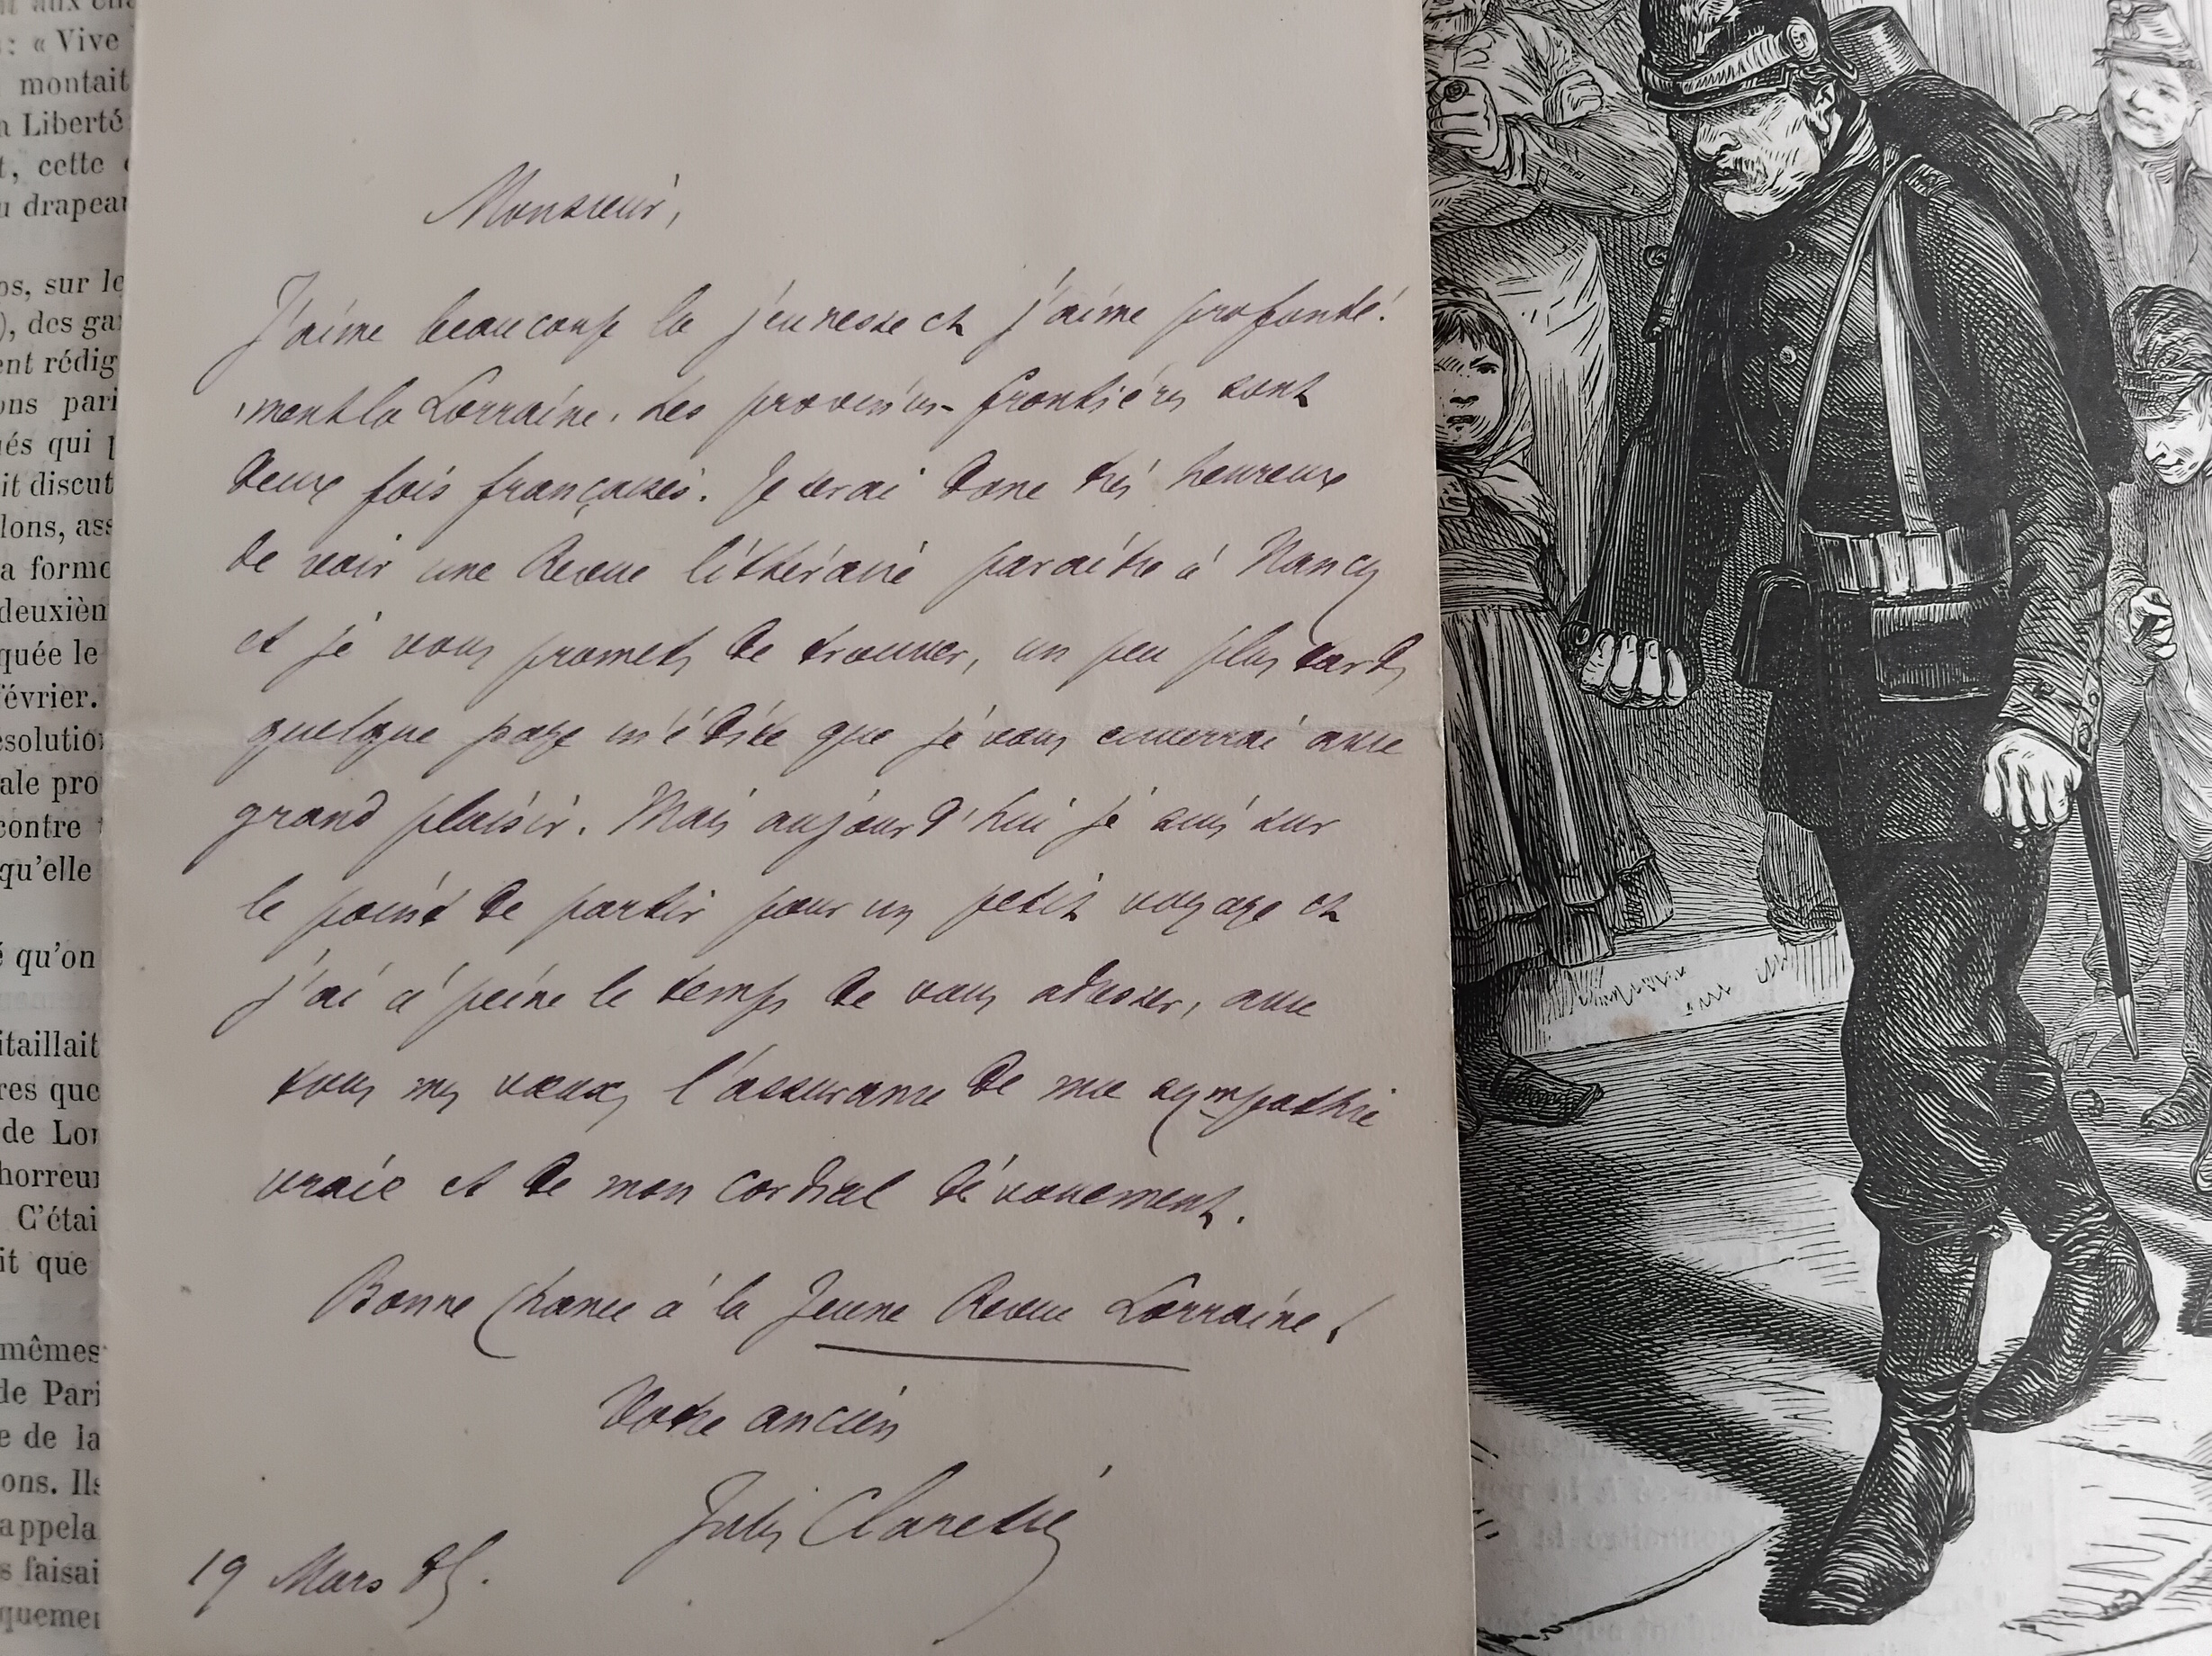 : « Vive
montait
Liberté
, cette
drapeau
sur le
), des ga
ent rédig
ons pari
és qui p
it discut
lons, ass
a forme
deuxièm
quée le
évrier.
ésolution
ale pro
contre
qu'elle
qu'on
itaillait
res que
de Lor
horreur
C'étai
it que
mêmes
de Pari
e de la
ons. Ils
appela
s faisai
quemen
Monsieur,
J'aime beaucoup la jeunesse et j'aime profondé-
-ment la Lorraine. Les provinces-frontières sont
deux fois françaises. Je serai donc très heureux
de voir une Revue littéraire paraître à Nancy
et je vous promets de trouver, un peu plus tard,
quelque page inédite que je vous enverrai avec
grand plaisir. Mais aujourd'hui je suis sur
le point de partir pour un petit voyage et
j'ai à peine le temps de vous adresser, avec
tous mes vœux, l'assurance de ma sympathie
vraie et de mon cordial dévouement.
Bonne chance à la Jeune Revue Lorraine !
Votre ancien
Jules Claretie
19 Mars 85.